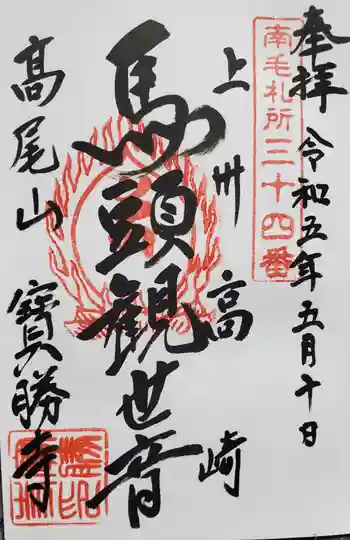 奉拝 令和五年五月十日
南毛札所三十四番
上州高崎
馬頭観世音
高尾山 寶勝寺